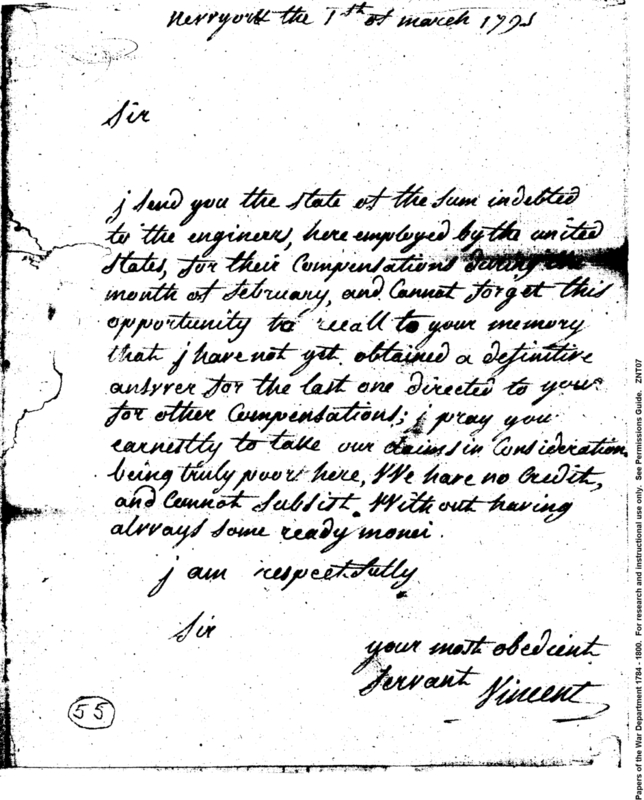 Nevvyork the 1th of march 1795
Sir
j send you the state of the sum indebted
to the engineers, here employed by the united
states, for their Compensations during the
month of february, and Cannot forget this
opportunity to recall to your memory
that j have not yet obtained a definitive
ansvver for the last one directed to you
for other Compensations; j pray you
earnestly to take our claims in Consideration
being truly poor here, We have no Credit,
and Cannot Subsist Without having
alvvays some ready monei.
j am respectfully
Sir
your most obedient
Servant Vincent
55
Papers of the War Department 1784 - 1800. For research and instructional use only. See Permissions Guide. ZNT07